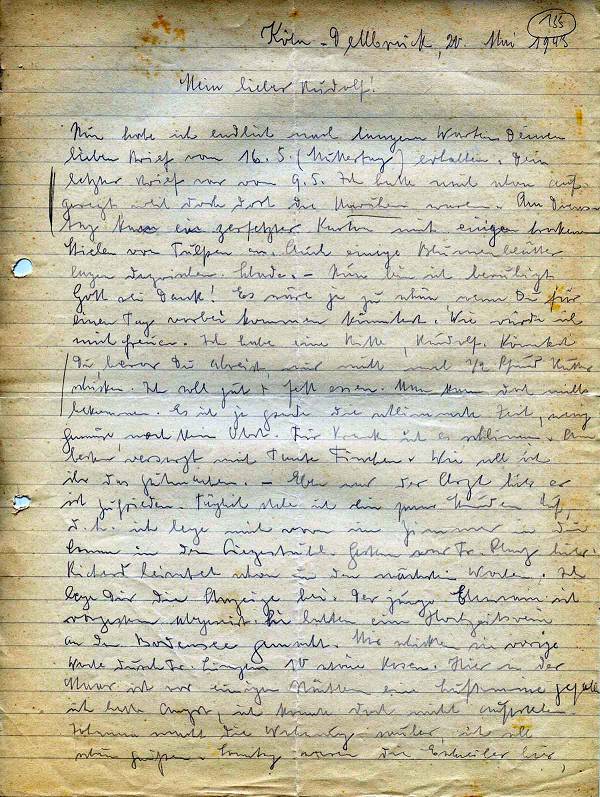 135
Köln-Dellbrück, 20. Mai 1943
Mein lieber Rudolf!
Nun habe ich endlich nach langem Warten Deinen
lieben Brief vom 16.5. (Muttertag) erhalten. Dein
letzter Brief war vom 9.5. Ich hatte mich schon auf-
geregt weil doch dort die waren. Am Diens-
tag kam ein zerfetzter Karton mit einigen trockenen
Stielen von Tulpen an. Auch einige Blumenblätter
lagen dazwischen. Schade. – Nun bin ich beruhigt
Gott sei Dank! Es wäre ja zu schön wenn Du für
einen Tag vorbei kommen könntest. Wie würde ich
mich freuen. Ich habe eine Bitte, Rudolf. Könntest
Du bevor Du abreist, mir noch mal 1/2 Pfund Butter
schicken. Ich soll gut + fett essen. Man kann doch nichts
bekommen. Es ist ja gerade die schlimmste Zeit, wenig
Gemüse noch kein Obst. Für Kranke ist es schlimm. Am
besten versorgt mich Tante Finchen. Wie soll ich
ihr das gutmachen. – Eben war der Arzt hier er
ist zufrieden. Täglich stehe ich ein paar Stunden auf,
d.h. ich lege mich vorn im Zimmer in die
Sonne in den Liegestuhl. Gestern war Fr. hier.
Richard heiratet schon in den nächsten Wochen. Ich
lege Dir die Anzeige bei. Der junge Ehemann ist
vorgestern abgereist. Sie hatten eine Hochzeitsreise
an den Bodensee gemacht. Mir schickten sie vorige
Woche durch Fr. Lingen 10 schöne Rosen. Hier in der
ist vor einigen Nächten eine Luftmine gefallen
ich hatte Angst, ich konnte doch nicht aufstehen.
macht die, ich soll
schön grüßen. Sonntag waren die Eschweiler hier,